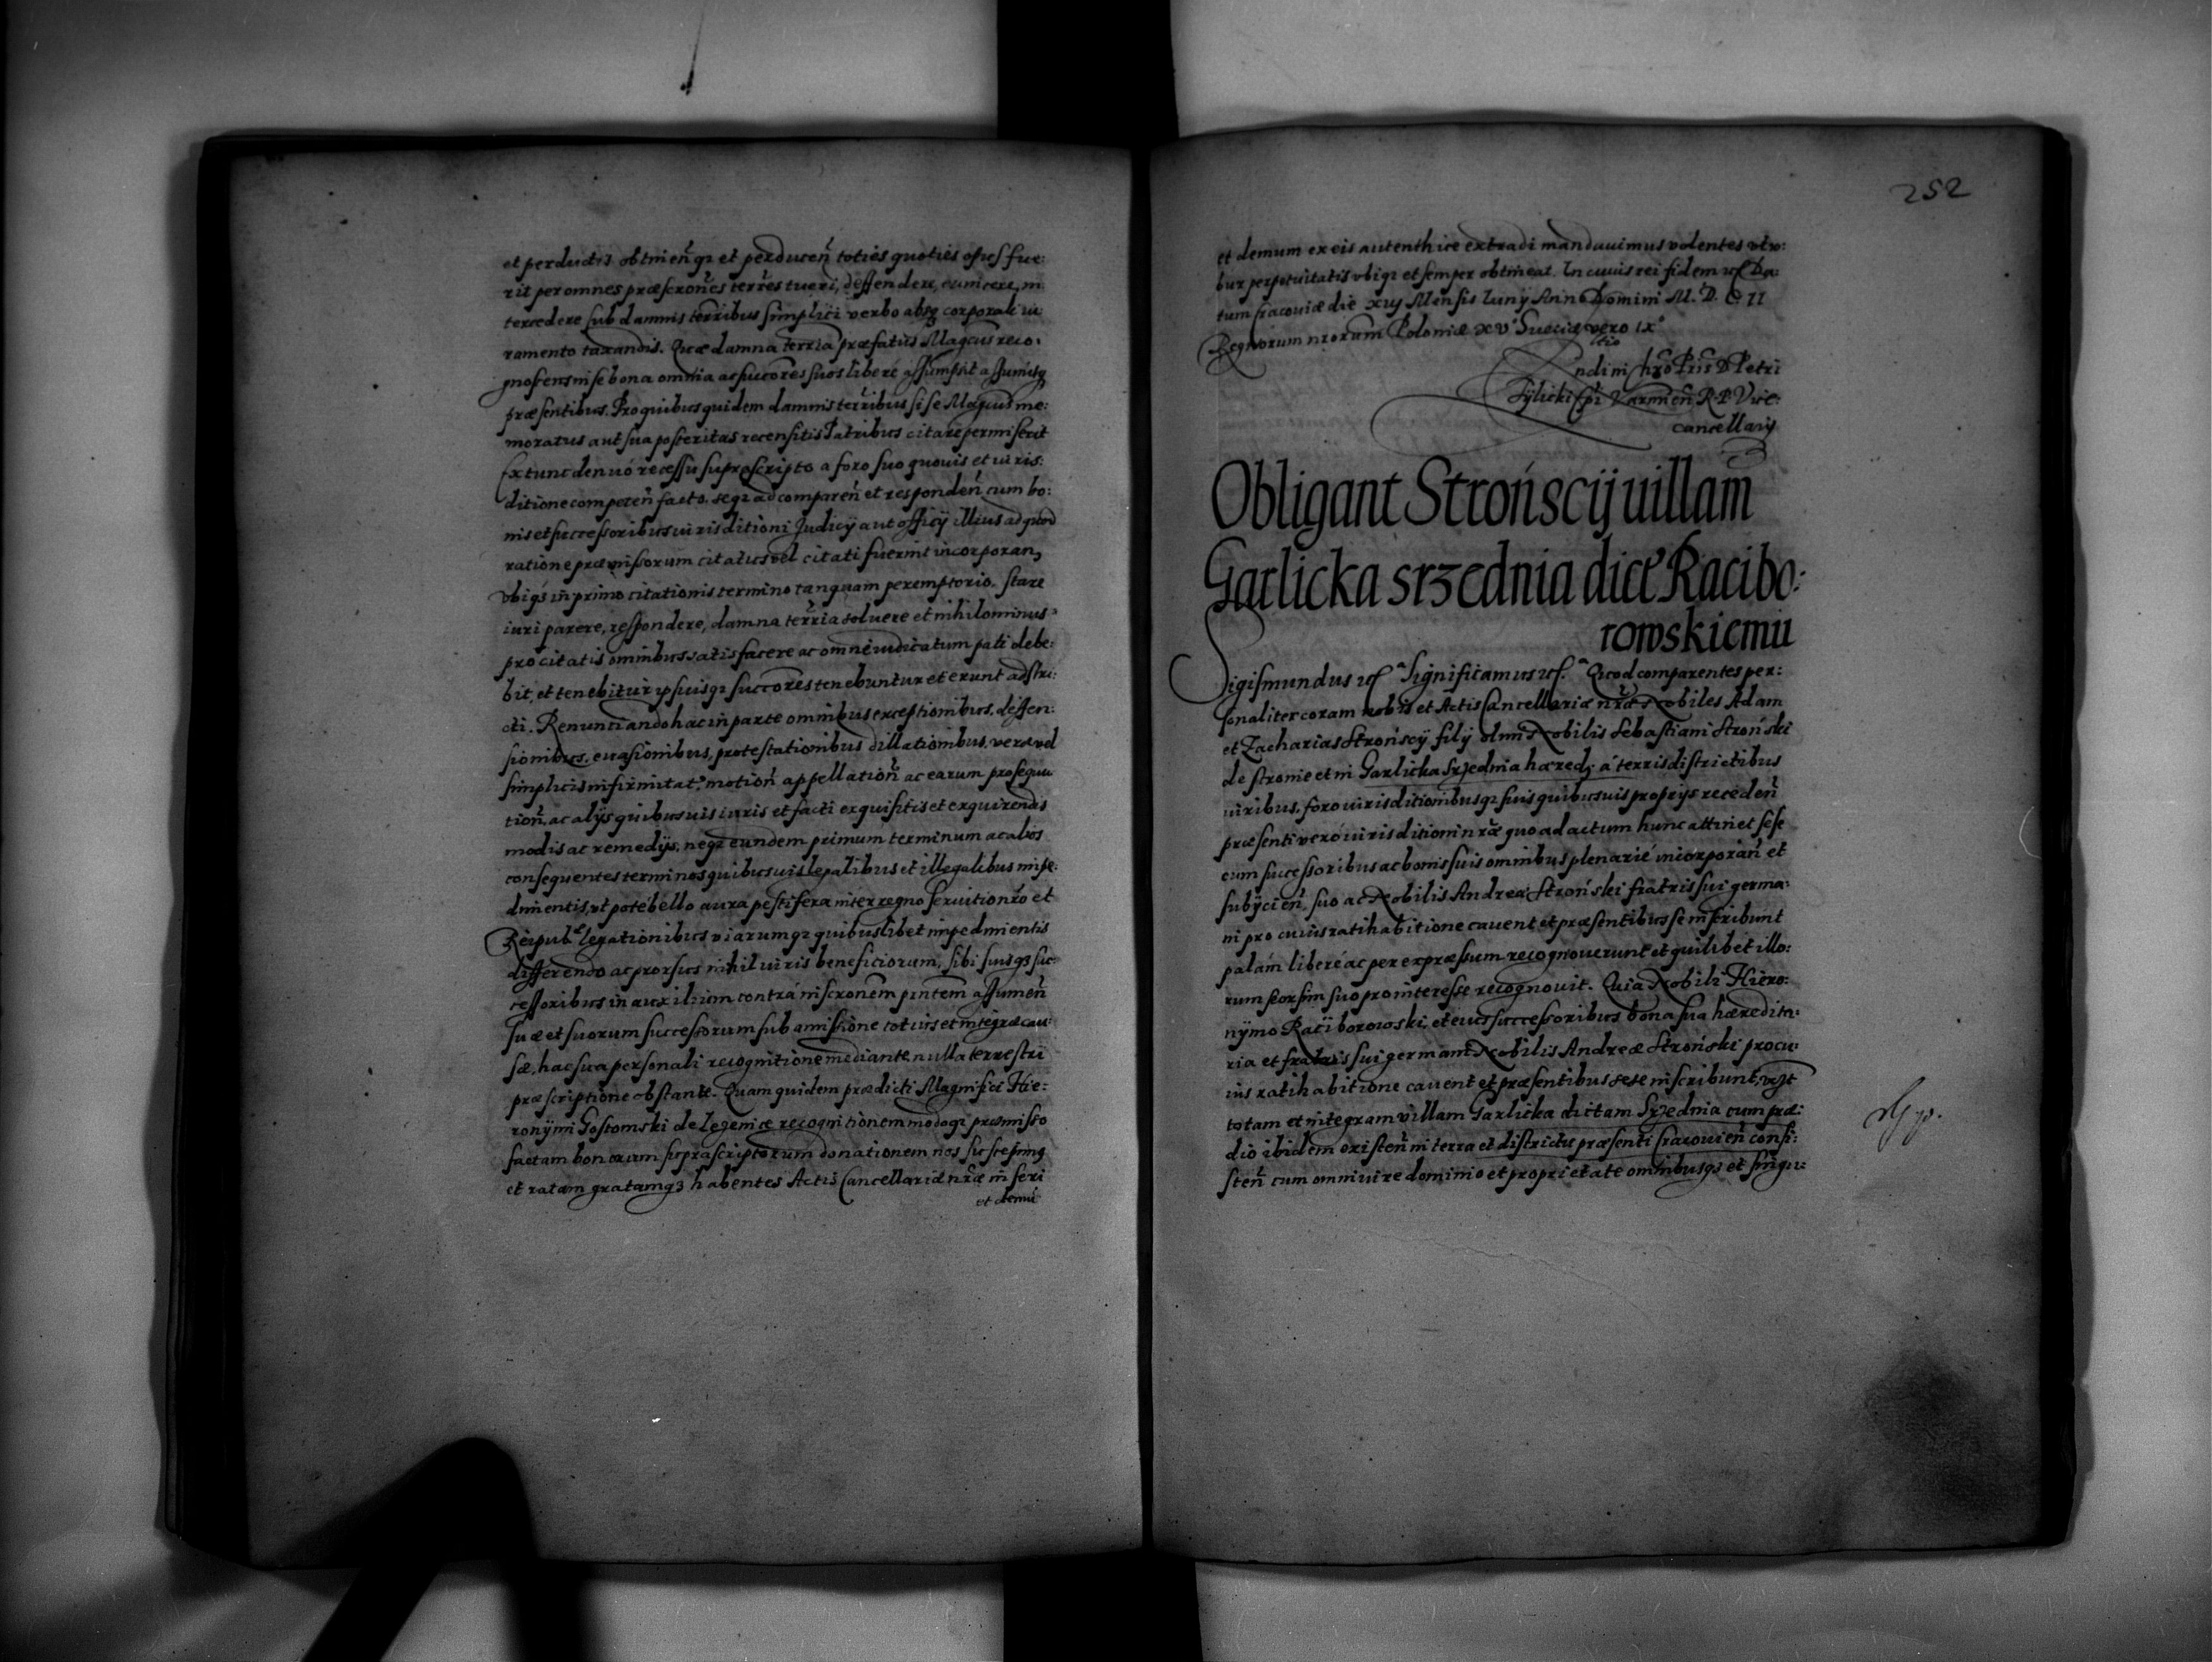 et perductis obtineñ qz et perduceñ toties quoties opus fue:
rit per omnes præscronẽs terrẽs tueri, deffendere, euincere, in
tercedere sub damnis terribus simplici verbo absqz corporali iu
ramento taxandis. Quæ damna terria præfatus Magcus reco:
gnoscens in se bona omnia ac succores suos liberé assumpsit assumitqz
præsentibus. Pro quibus quidem damnis terribus si se Magcus me:
moratus aut sua posteritas recensitis Fatribus citare permiserit
Extunc denuó recessu suprascripto a foro suo quouis et iuris:
ditione competeñ facto. seqz ad compareñ et respondeñ cum bo:
nis et successoribus iurisditioni Judicij aut officij illius ad quod
ratione præmissorum citatus vel citati fuerint incorporan,
vbiqz in primo citationis termino tanquam peremptorio stare
iuri parere, respondere, damna terria soluere et nihilominus
pro citatis omnibus satisfacere ac omne iudicatum pati debe:
bit, et tenebitur ipsuisqz succores tenebuntur et erunt adstri:
cti. Renuntiando hac in parte omnibus exceptionibus, deffen:
sionibus, euasionibus, protestationibus dillationibus, vera vel
simplicis infirmitat, motioñ appellatioñ ac earum prosequu
tioñ, ac alijs quibusuis iuris et facti exquisitis et exquirendis
modis ac remedijs, neqz eundem primum terminum ac alios
consequentes terminos quibusuis legalibus et illegalibus impe
dimentis, vt poté bello aura pestifera interregno seruition ro et
Reipub legationibus viarumqz quibuslibet impedimentis
differendo ac prorsus nihil iuris beneficiorum, sibi suisqz suc:
cessoribus in auxilium contrá inscronem pntem assumeñ
suæ et suorum successorum sub amissione totius et integræ cau:
sæ, hac sua personali recognitione mediante nulla terrestri
præscriptione obstante. Quam quidem prædicti Magnifici Hie:
ronijmi Gostomski de Lezenicæ recognitionem modoqz præmisso
factam bonorum suprascriptorum donationem nos suscepimqz
et ratam gratamqz habentes Actis Cancellariæ nræ inseri
et demũ
252
et demum ex eis autenthice extradi mandauimus volentes vt ro:
bur perpetuitatis vbiqz et semper obtineat. In cuius rei fidem etc Da:
tum Cracouiæ die xiij Mensis Iunij Anno Domini M. D. C II
Regnorum nrorum Poloniæ xv° Sueciæ vero ix°
tio
ndi in Chro Pris D Petri
Tÿlicki Epi Varmieñ R. P. Vice:
cancellarij
Obligant Strońscij uillam
Garlicka srzednia dict Racibo:
rowskiemu
Sigismundus etc Significamus etc. Quod comparentes per:
sonaliter coram nobis et Actis Cancellariæ nræ Nobiles Adam
et Zacharias Strońscÿ filÿ olim Nobilis Sebastiani Stroński
de Stronie et in Garlicka Srzednia hæred, á terris districtibus
iuribus, foro iurisditionibusqz suis quibusuis proprijs recedeñ
præsenti veró iurisditioni nræ quo ad actum hunc attinet sese
cum successoribus ac bonis suis omnibus plenarié incorporañ et
subijcieñ, suo ac Nobilis Andreæ Stroński fratris sui germa:
ni pro cuius ratihabitione cauent et præsentibus se inscribunt
palám liberé ac per expræssum recognouerunt et quilibet illo:
rum seorsim suo pro interesse recognouit. Quia Nobili Hiero:
nÿmo Raciborowski, et eius successoribus bona sua hæredita:
ria et fratris sui germani Nobilis Andreæ Stroński pro cu:
ius ratihabitione cauent et præsentibus sese inscribunt, vczt
totam et integram villam Garlicka dictam Srzednia cum præ:
dio ibidem existeñ in terra et districtu præsenti Cracouieñ consi:
steñ cum omni iure dominio et proprietate omnibusqz et singu: